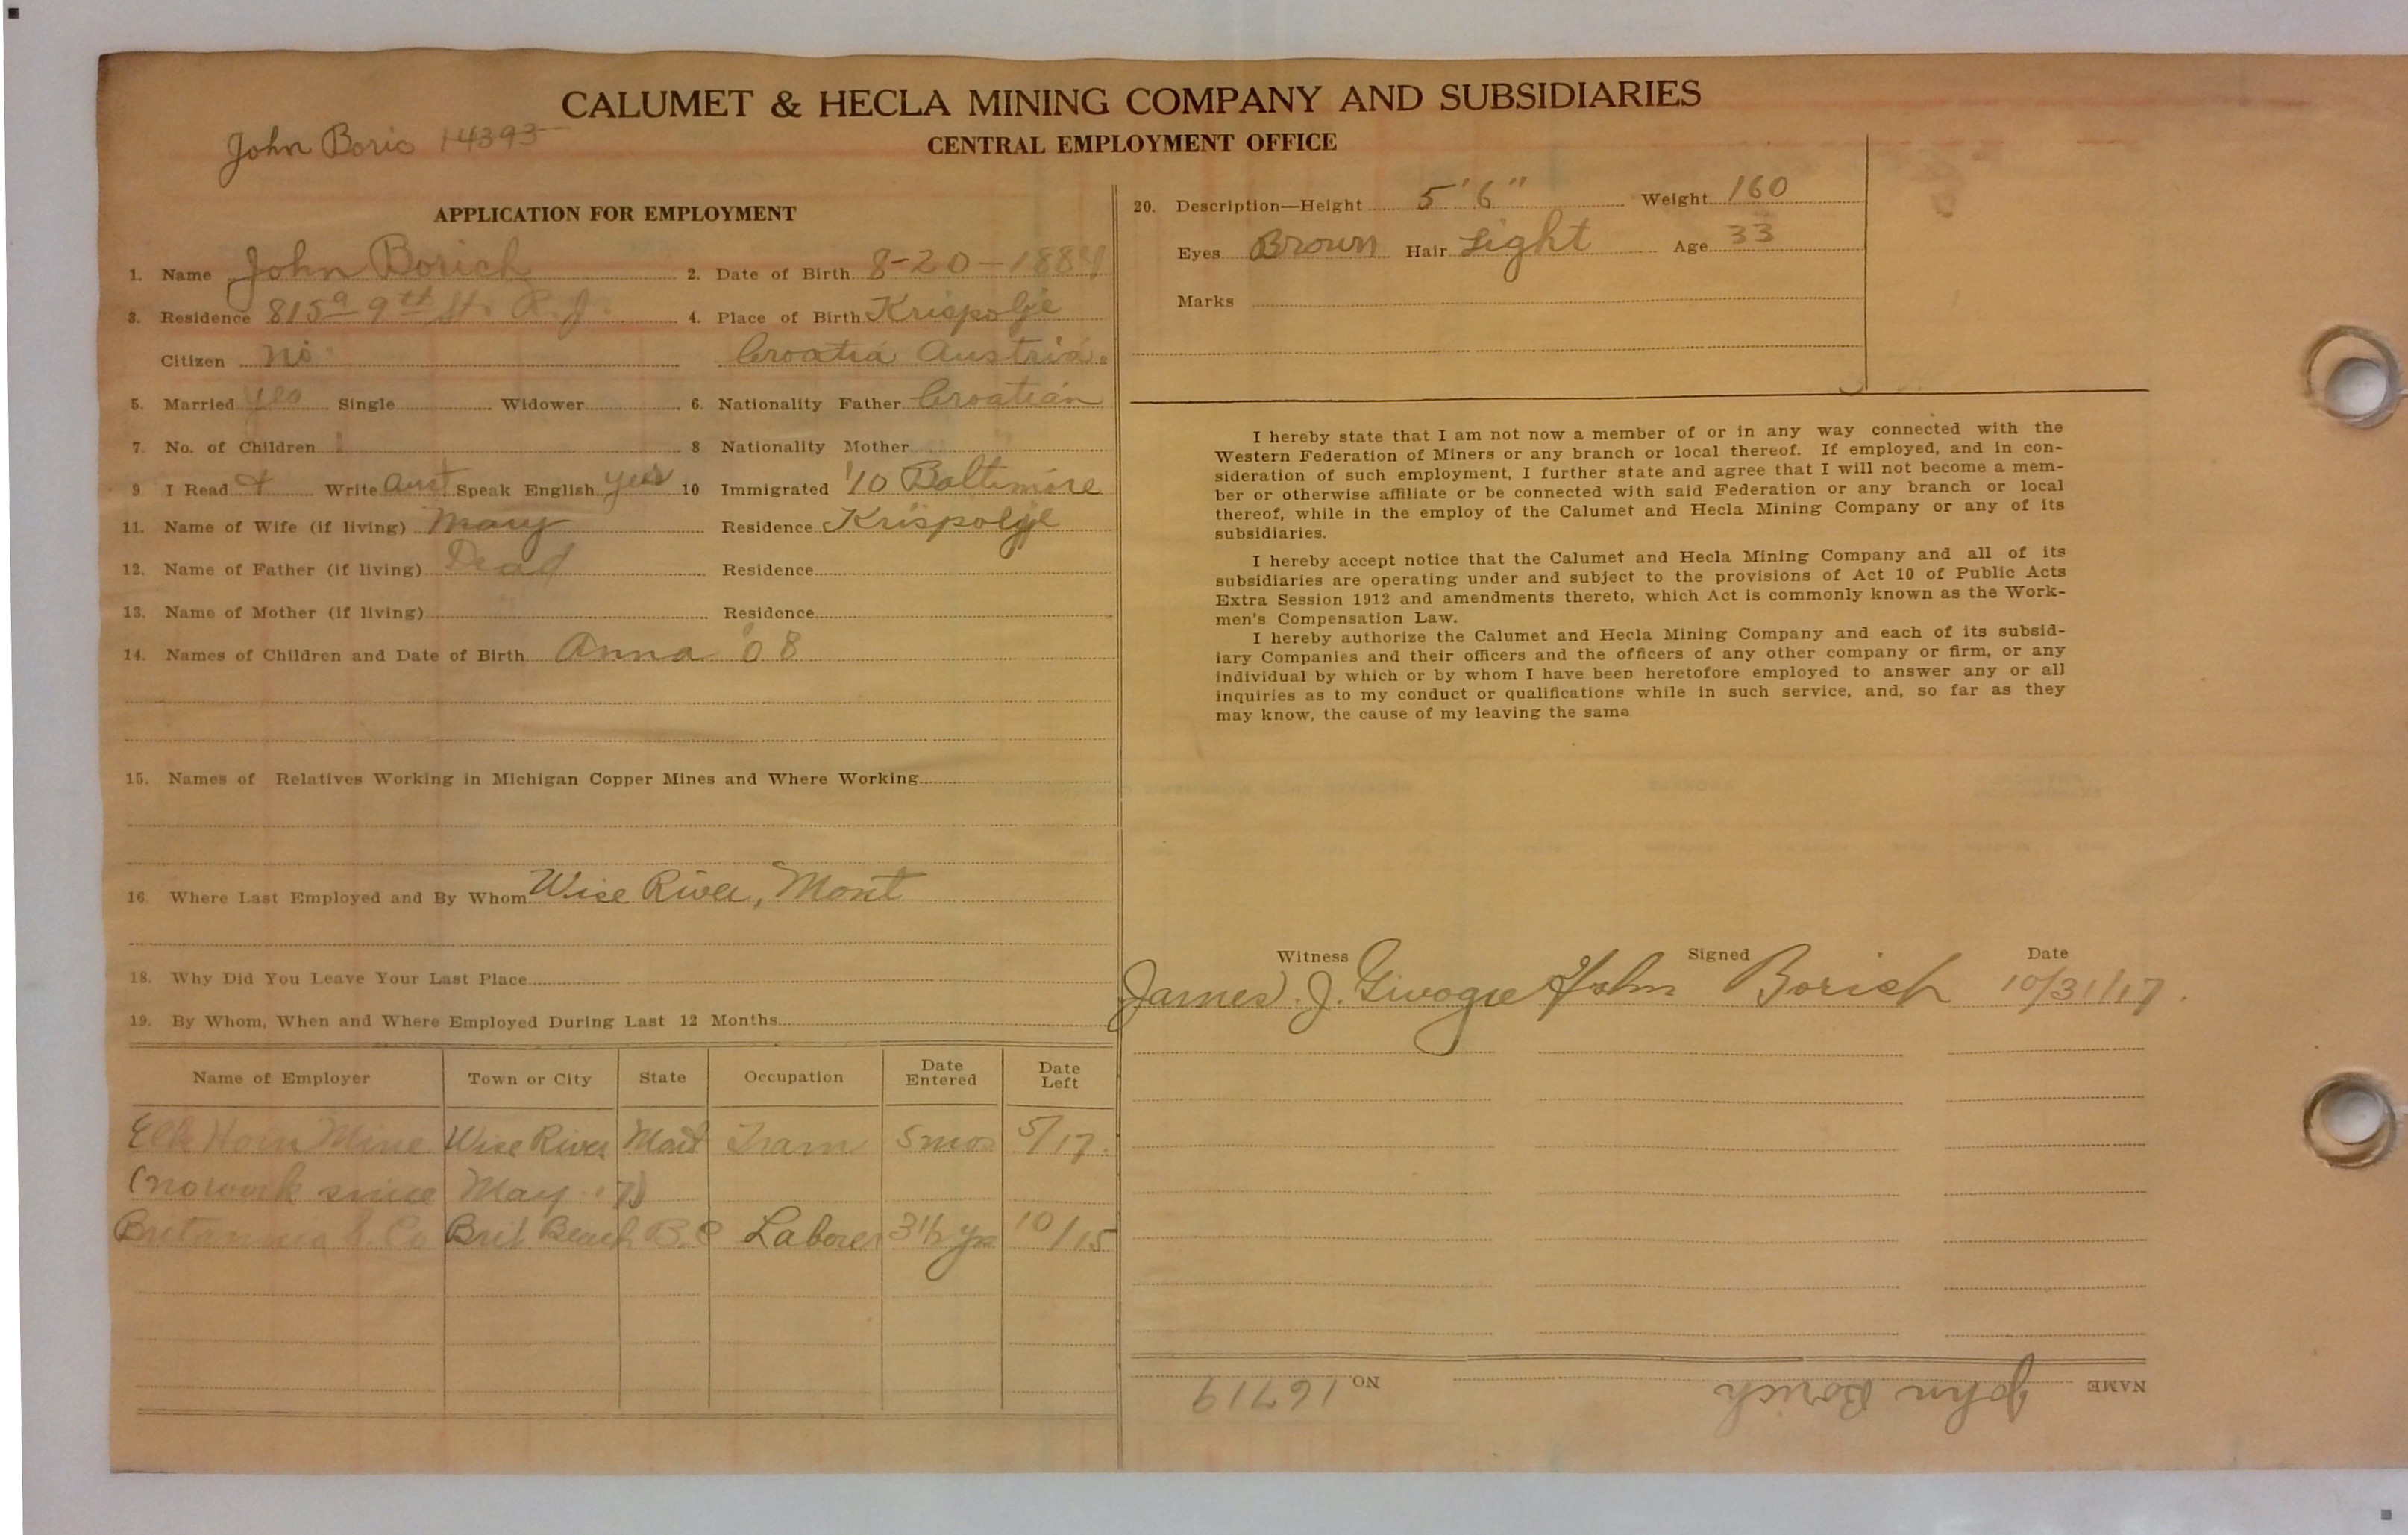 CALUMET & HECLA MINING COMPANY AND SUBSIDIARIES
CENTRAL EMPLOYMENT OFFICE
John Boric 14393
APPLICATION FOR EMPLOYMENT
1. Name John Borich 2. Date of Birth 8-20-1884
3. Residence 815a 9th St. R.J. 4. Place of Birth Krispolje
Citizen no Croatia Austria.
5. Married yes Single Widower 6. Nationality Father Croatian
7. No. of Children 1 8 Nationality Mother " "
9 I Read + Write Aust Speak English yes 10 Immigrated '10 Baltimore
11. Name of Wife (if living) Mary Residence Krispolje
12. Name of Father (if living) Dead Residence
13. Name of Mother (if living) " Residence
14. Names of Children and Date of Birth Anna '08
15. Names of Relatives Working in Michigan Copper Mines and Where Working
16. Where Last Employed and By Whom Wise River, Mont
18. Why Did You Leave Your Last Place
19. By Whom, When and Where Employed During Last 12 Months
Name of Employer Town or City State Occupation Date Entered Date Left
Elk Horn Mine Wise River Mont Tram 5 mos 5/17.
(no work since May '17)
Britannia S. Co Brit Beach B.C Laborer 3½ yrs 10/15
20. Description—Height 5'6" Weight 160
Eyes Brown Hair Light Age 33
Marks
I hereby state that I am not now a member of or in any way connected with the
Western Federation of Miners or any branch or local thereof. If employed, and in con-
sideration of such employment, I further state and agree that I will not become a mem-
ber or otherwise affiliate or be connected with said Federation or any branch or local
thereof, while in the employ of the Calumet and Hecla Mining Company or any of its
subsidiaries.
I hereby accept notice that the Calumet and Hecla Mining Company and all of its
subsidiaries are operating under and subject to the provisions of Act 10 of Public Acts
Extra Session 1912 and amendments thereto, which Act is commonly known as the Work-
men's Compensation Law.
I hereby authorize the Calumet and Hecla Mining Company and each of its subsid-
iary Companies and their officers and the officers of any other company or firm, or any
individual by which or by whom I have been heretofore employed to answer any or all
inquiries as to my conduct or qualifications while in such service, and, so far as they
may know, the cause of my leaving the same
Witness Signed Date
James J. John Borich 10/31/17.
NAME John Borich NO 16719